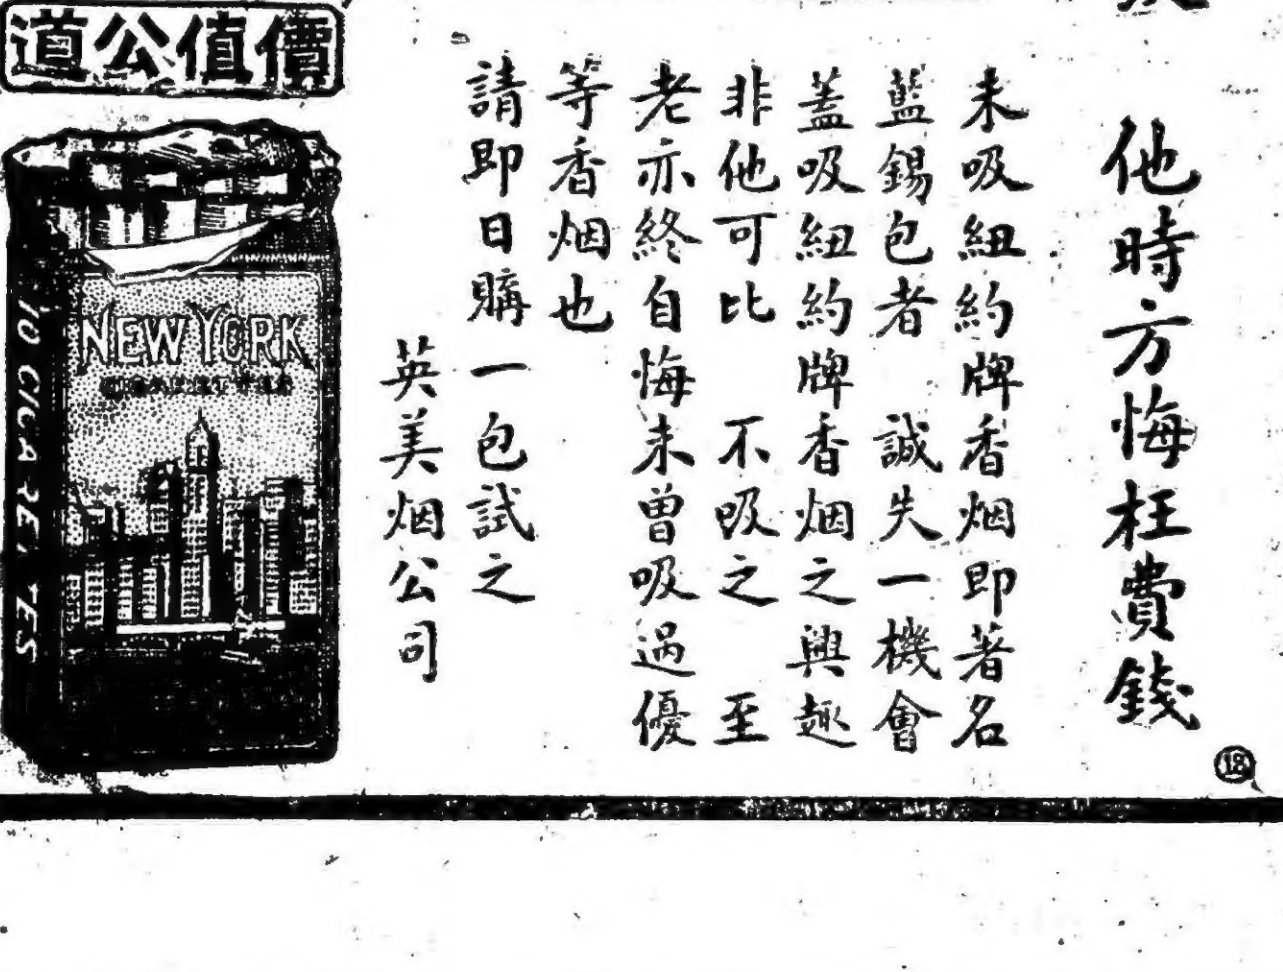 他時方悔枉費錢
未吸紐約牌香烟即著名
藍錫包者 誠失一機會
蓋吸紐約牌香烟之興趣
非他可比 不吸之 至
老亦終自悔未曾吸過優
等香烟也
請即日購一包試之
英美烟公司
價值公道
NEW YORK
CIGARETTES
10 CIGARETTES
18